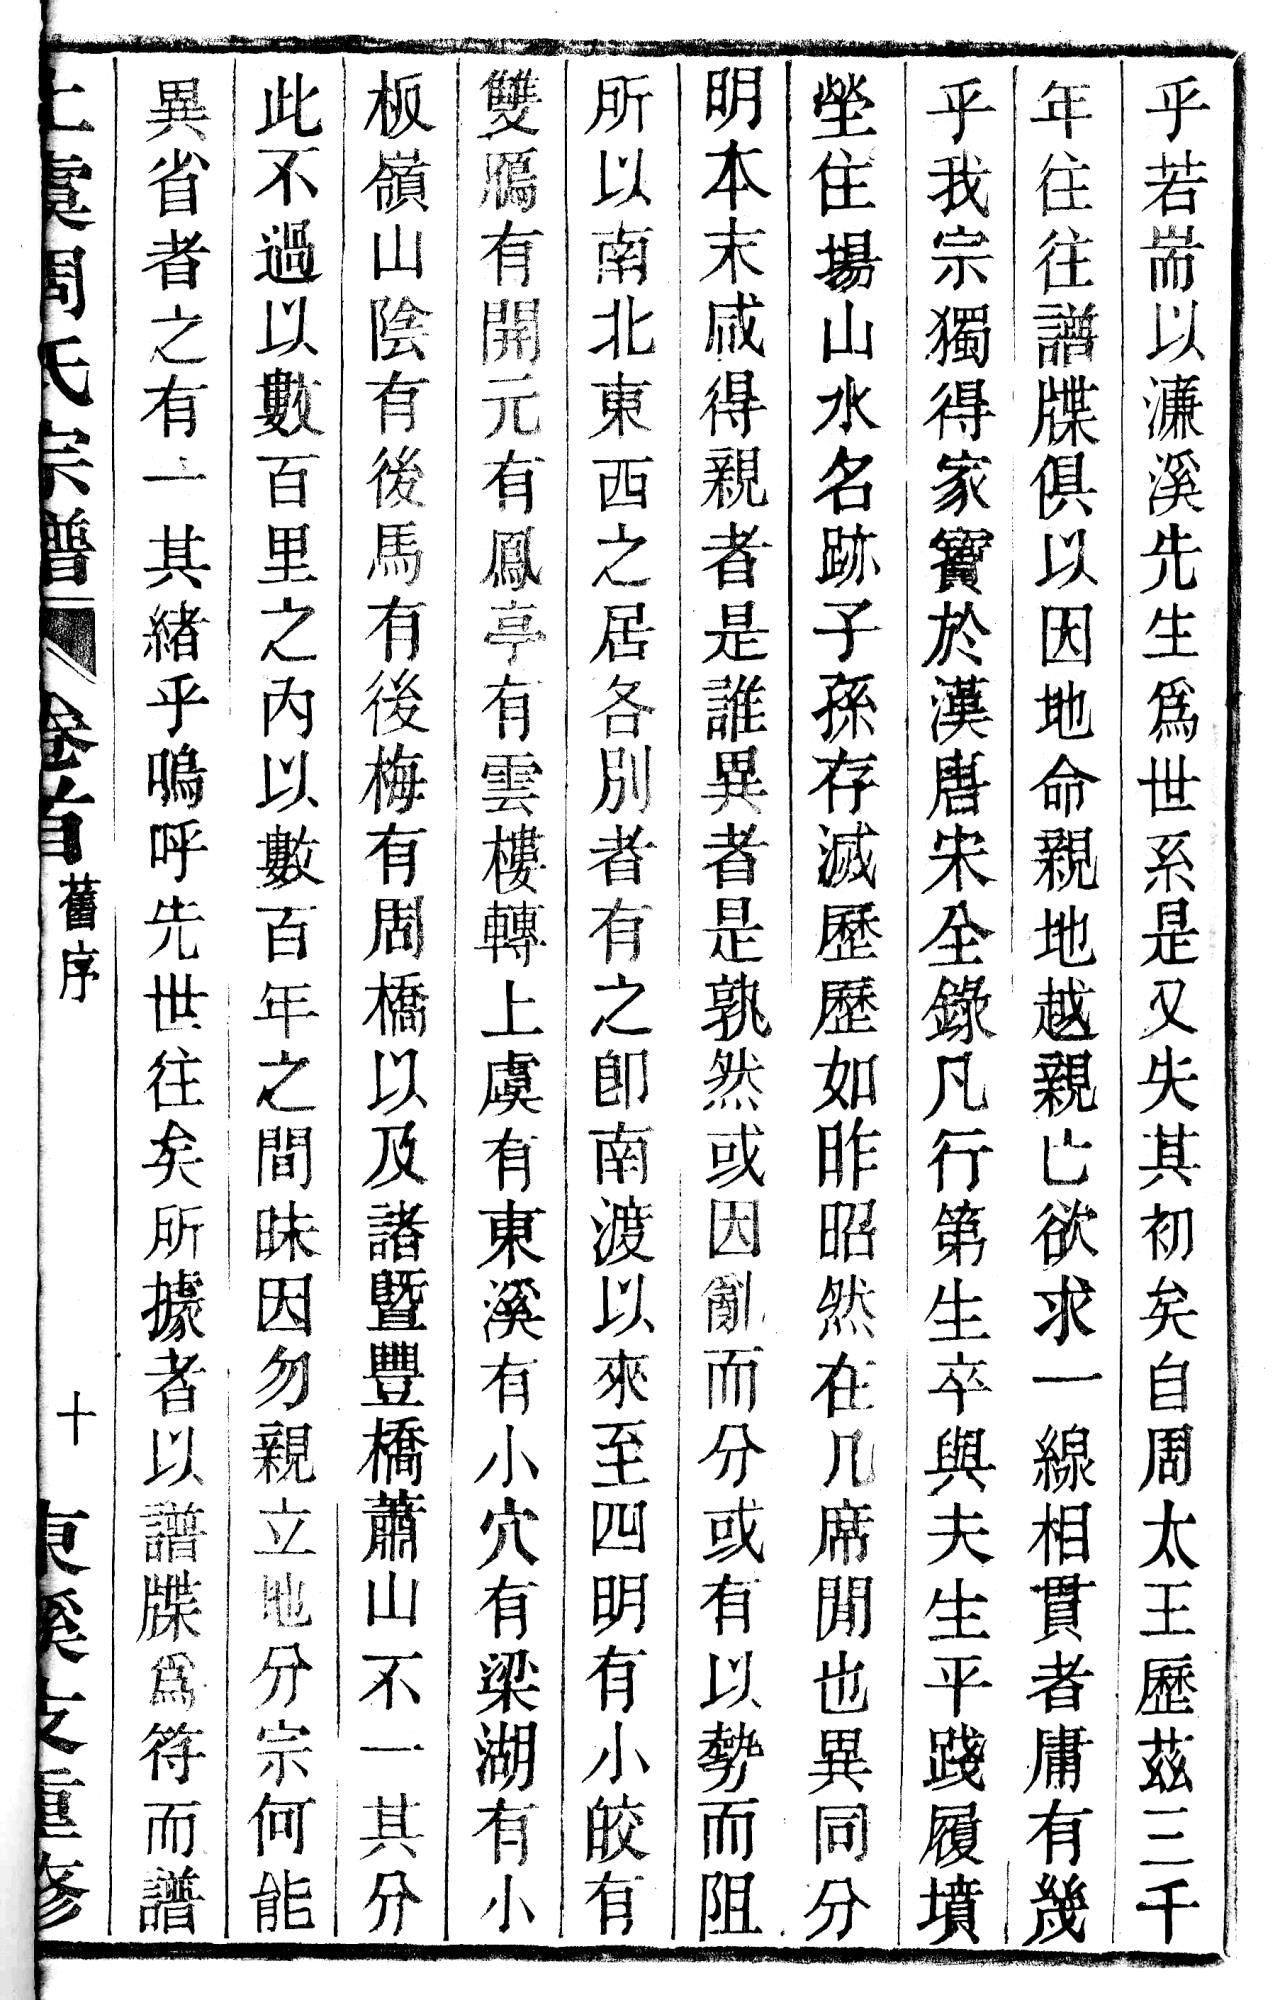 乎若耑以濂溪先生爲世系是又失其初矣自周太王歷茲三千
年往往譜牒俱以因地命親地越親亡欲求一線相貫者庸有幾
乎我宗獨得家寶於漢唐宋全錄凡行第生卒與夫生平踐履墳
塋住場山水名跡子孫存滅歷歷如昨昭然在几席間也異同分
明本末咸得親者是誰異者是孰然或因亂而分或有以勢而阻
所以南北東西之居各別者有之卽南渡以來至四明有小皎有
雙鴈有開元有鳳亭有雲樓轉上虞有東溪有小穴有梁湖有小
板嶺山陰有後馬有後梅有周橋以及諸暨豐橋蕭山不一其分
此不過以數百里之內以數百年之間昧因勿親立地分宗何能
異省者之有一其緒乎嗚呼先世往矣所據者以譜牒爲符而譜
上虞周氏宗譜 卷首 舊序 十 東溪支重修